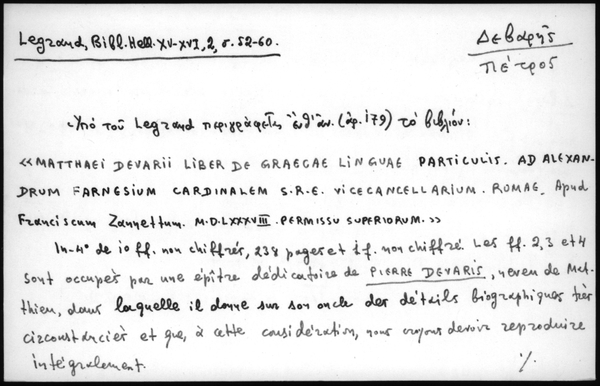 Legrand, Bibl. Hell. XV-XVI, 2, σ. 52-60.
Δεβαρῆς
Πέτρος
Ὑπό τοῦ Legrand περιγράφεται (ἀρ. 179) τό βιβλίον:
«MATTHAEI DEVARII LIBER DE GRAECAE LINGUAE PARTICULIS. AD ALEXAN-
DRUM FARNESIUM CARDINALEM S.R.E. VICECANCELLARIUM. ROMAE, Apud
Franciscum Zannettum. M.D.LXXXVIII. PERMISSU SUPERIORUM.»
In-4° de 10 ff. non chiffrés, 238 pages et 1 f. non chiffré. Les ff. 2, 3 et 4
sont occupés par une épître dédicatoire de PIERRE DEVARIS, neveu de Mat-
thieu, dans laquelle il donne sur son oncle des détails biographiques très
circonstanciés et que, à cette considération, nous croyons devoir reproduire
intégralement.
٪.